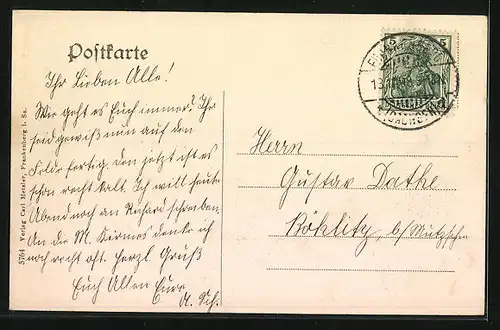 Postkarte
Ihr Lieben Alle!
Wie geht es Euch immer? Ihr
seid gewiß nun auf den
Felde fertig, den jetzt ist es
schon recht kalt. Ich will heute
Abend noch an Richard schreiben.
An die M. Kirmes denke ich
noch recht oft. Herzl. Gruß
Euch Allen Eure
A. Sch.
Herrn
Gustav Dathe
Böhlitz b/Mutzschen
5764 Verlag Carl Metzler, Frankenberg i. Sa.
5